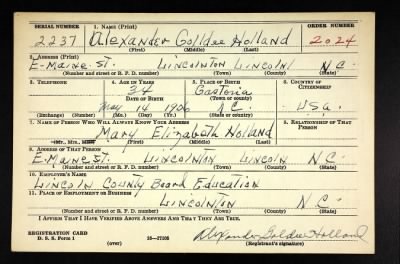 SERIAL NUMBER 1. NAME (Print) ORDER NUMBER
2237 Alexander Golldee Holland 2024
(First) (Middle) (Last)
2. ADDRESS (Print)
E-Maine-St. Lincolnton Lincoln N.C.
(Number and street or R. F. D. number) (Town) (County) (State)
3. TELEPHONE 4. AGE IN YEARS 5. PLACE OF BIRTH 6. COUNTRY OF CITIZENSHIP
34 Gastonia
DATE OF BIRTH (Town or county)
May 14 1906 N.C. U.S.A.
(Exchange) (Number) (Mo.) (Day) (Yr.) (State or country)
7. NAME OF PERSON WHO WILL ALWAYS KNOW YOUR ADDRESS 8. RELATIONSHIP OF THAT PERSON
Mary Elizabeth Holland
(Mr., Mrs., Miss) (First) (Middle) (Last)
9. ADDRESS OF THAT PERSON
E-Maine St. Lincolnton Lincoln N.C.
(Number and street or R. F. D. number) (Town) (County) (State)
10. EMPLOYER'S NAME
Lincoln County Board Education
11. PLACE OF EMPLOYMENT OR BUSINESS
Lincolnton N.C.
(Number and street or R. F. D. number) (Town) (County) (State)
I AFFIRM THAT I HAVE VERIFIED ABOVE ANSWERS AND THAT THEY ARE TRUE.
REGISTRATION CARD
D. S. S. Form 1 (over) 16-17105 Alexander Goldee Holland
(Registrant's signature)